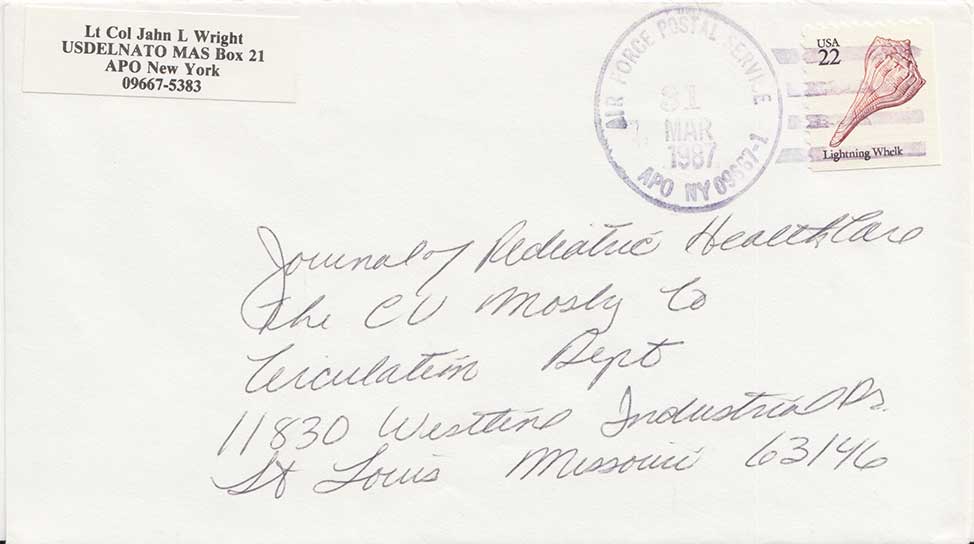 Lt Col Jahn L Wright
USDELNATO MAS Box 21
APO New York
09667-5383
AIR FORCE POSTAL SERVICE
31
MAR
1987
APO NY 09667-1
USA
22
Lightning Whelk
Journal of Pediatric HealthCare
The CV Mosby Co
Circulation Dept
11830 Westline Industrial Dr.
St Louis Missouri 63146